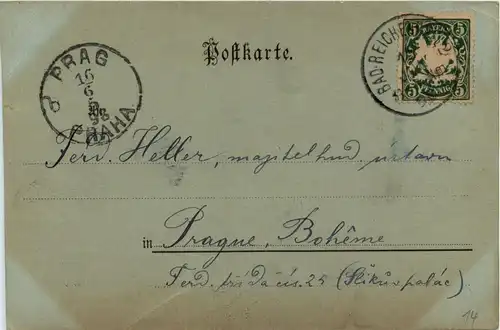 Postkarte.
PRAG
16
6
98
PRAHA
BAD-REICHE
BAYERN
5 5
5 5
PFENNIG
Ferd. Heller, majitel hud. ústavu
in Prague, Bohême
Ferd. třída čís. 25 (Šlikův palác)
14